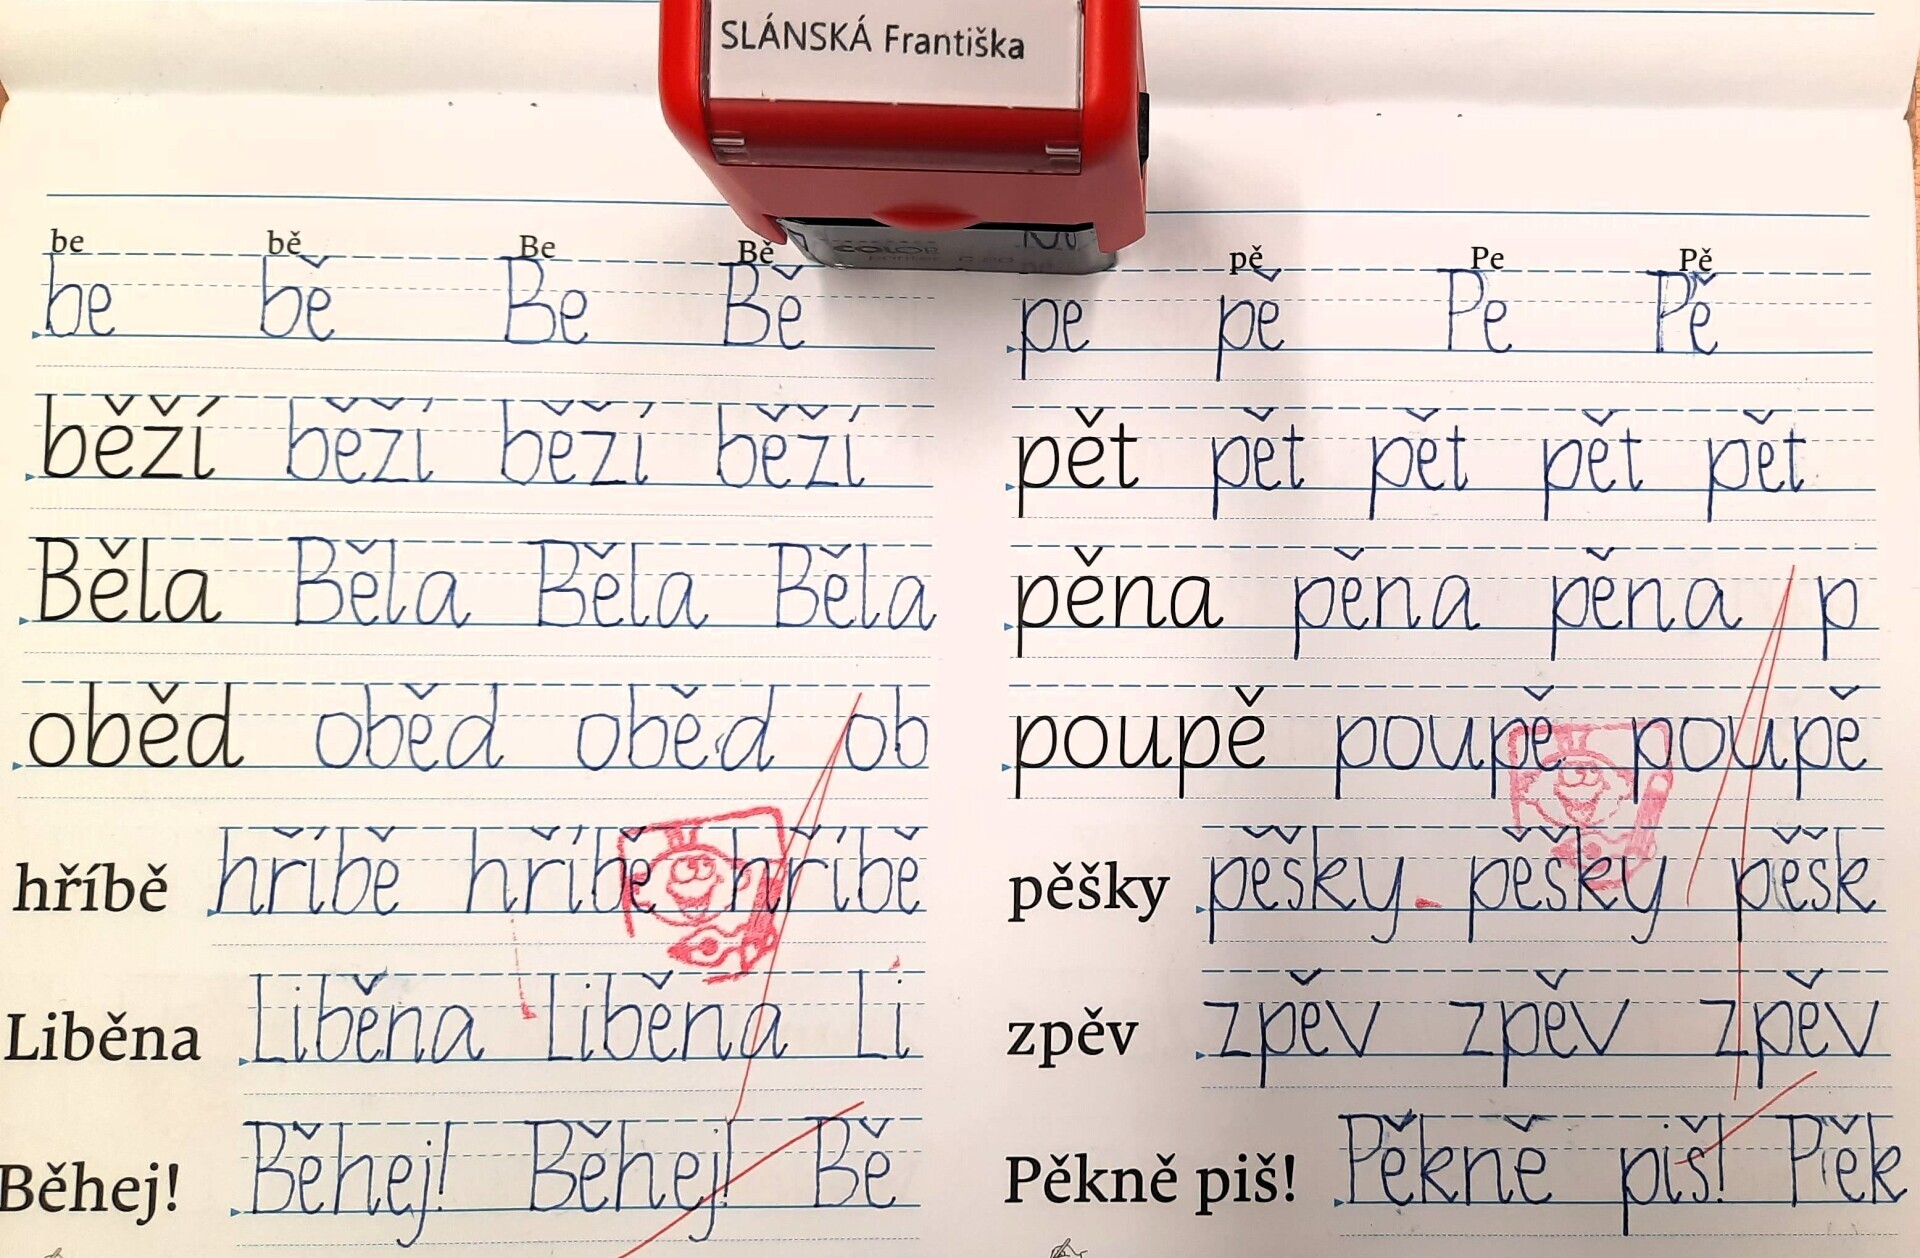 SLÁNSKÁ Františka
COLOP
be bě Be Bě
be bě Be Bě
běží běží běží běží
Běla Běla Běla Běla
oběd oběd oběd ob
hříbě hříbě hříbě hříbě
Liběna Liběna Liběna Li
Běhej! Běhej! Běhej! Bě
pě Pe Pě
pe pě Pe Pě
pět pět pět pět pět
pěna pěna pěna p
poupě poupě poupě
pěšky pěšky pěšky pěšk
zpěv zpěv zpěv zpěv
Pěkně piš! Pěkně piš! Pěk